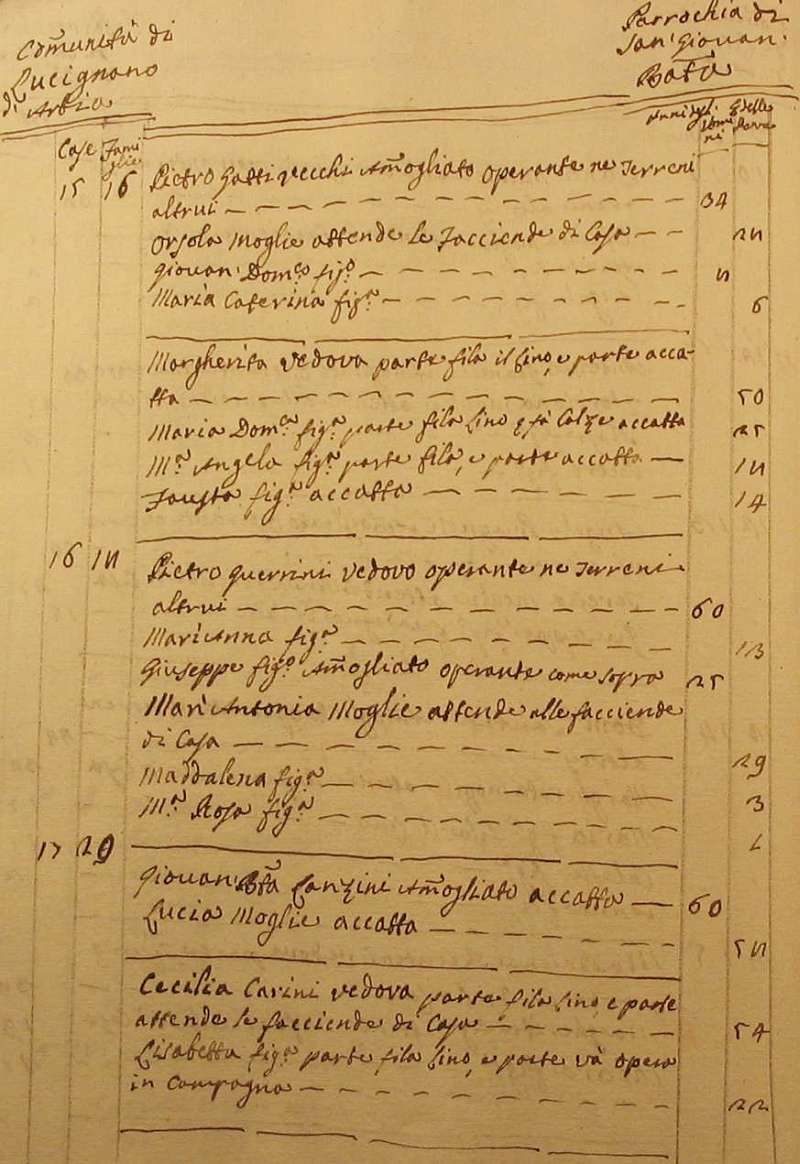 Comunità di
Lucignano
di Arbia
Parrochia di
San' Giovan'
Batã
Case
Fami
glie
Anni degl'
Uomi
ni
E delle
Donne
15 16 Pietro Gatti vecchi Am̃ogliato operante ne Terreni
altrui — 34
Orsola Moglie attende le Facciende di Casa —
Giovan' Domco figo —
Maria Caterina figa — 6
Margherita vedova parte fila il Lino, e parte acca-
tta — 50
Maria Domca figa parte fila Lino e fà Calze accatta 25
Ma Angela figa parte fila, e parte accatta —
Fausta figa accatta — 14
16 Pietro Guerrini vedovo operante ne Terreni
altrui — 60
Mari'Anna figa — 13
Giuseppe figo Am̃ogliato operante come sopra 25
Mari'Antonia Moglie attende alle facciende
di Casa — 29
Maddalena figa — 3
Ma Rosa figa —
17
Giovan' Btã Lanzini Am̃ogliato accatta — 60
Lucia Moglie accatta —
Cecilia Carini vedova parte fila Lino, e parte
attende le facciende di Casa — 54
Lisabetta figa parte fila Lino, e parte và opera
in Campagna — 22